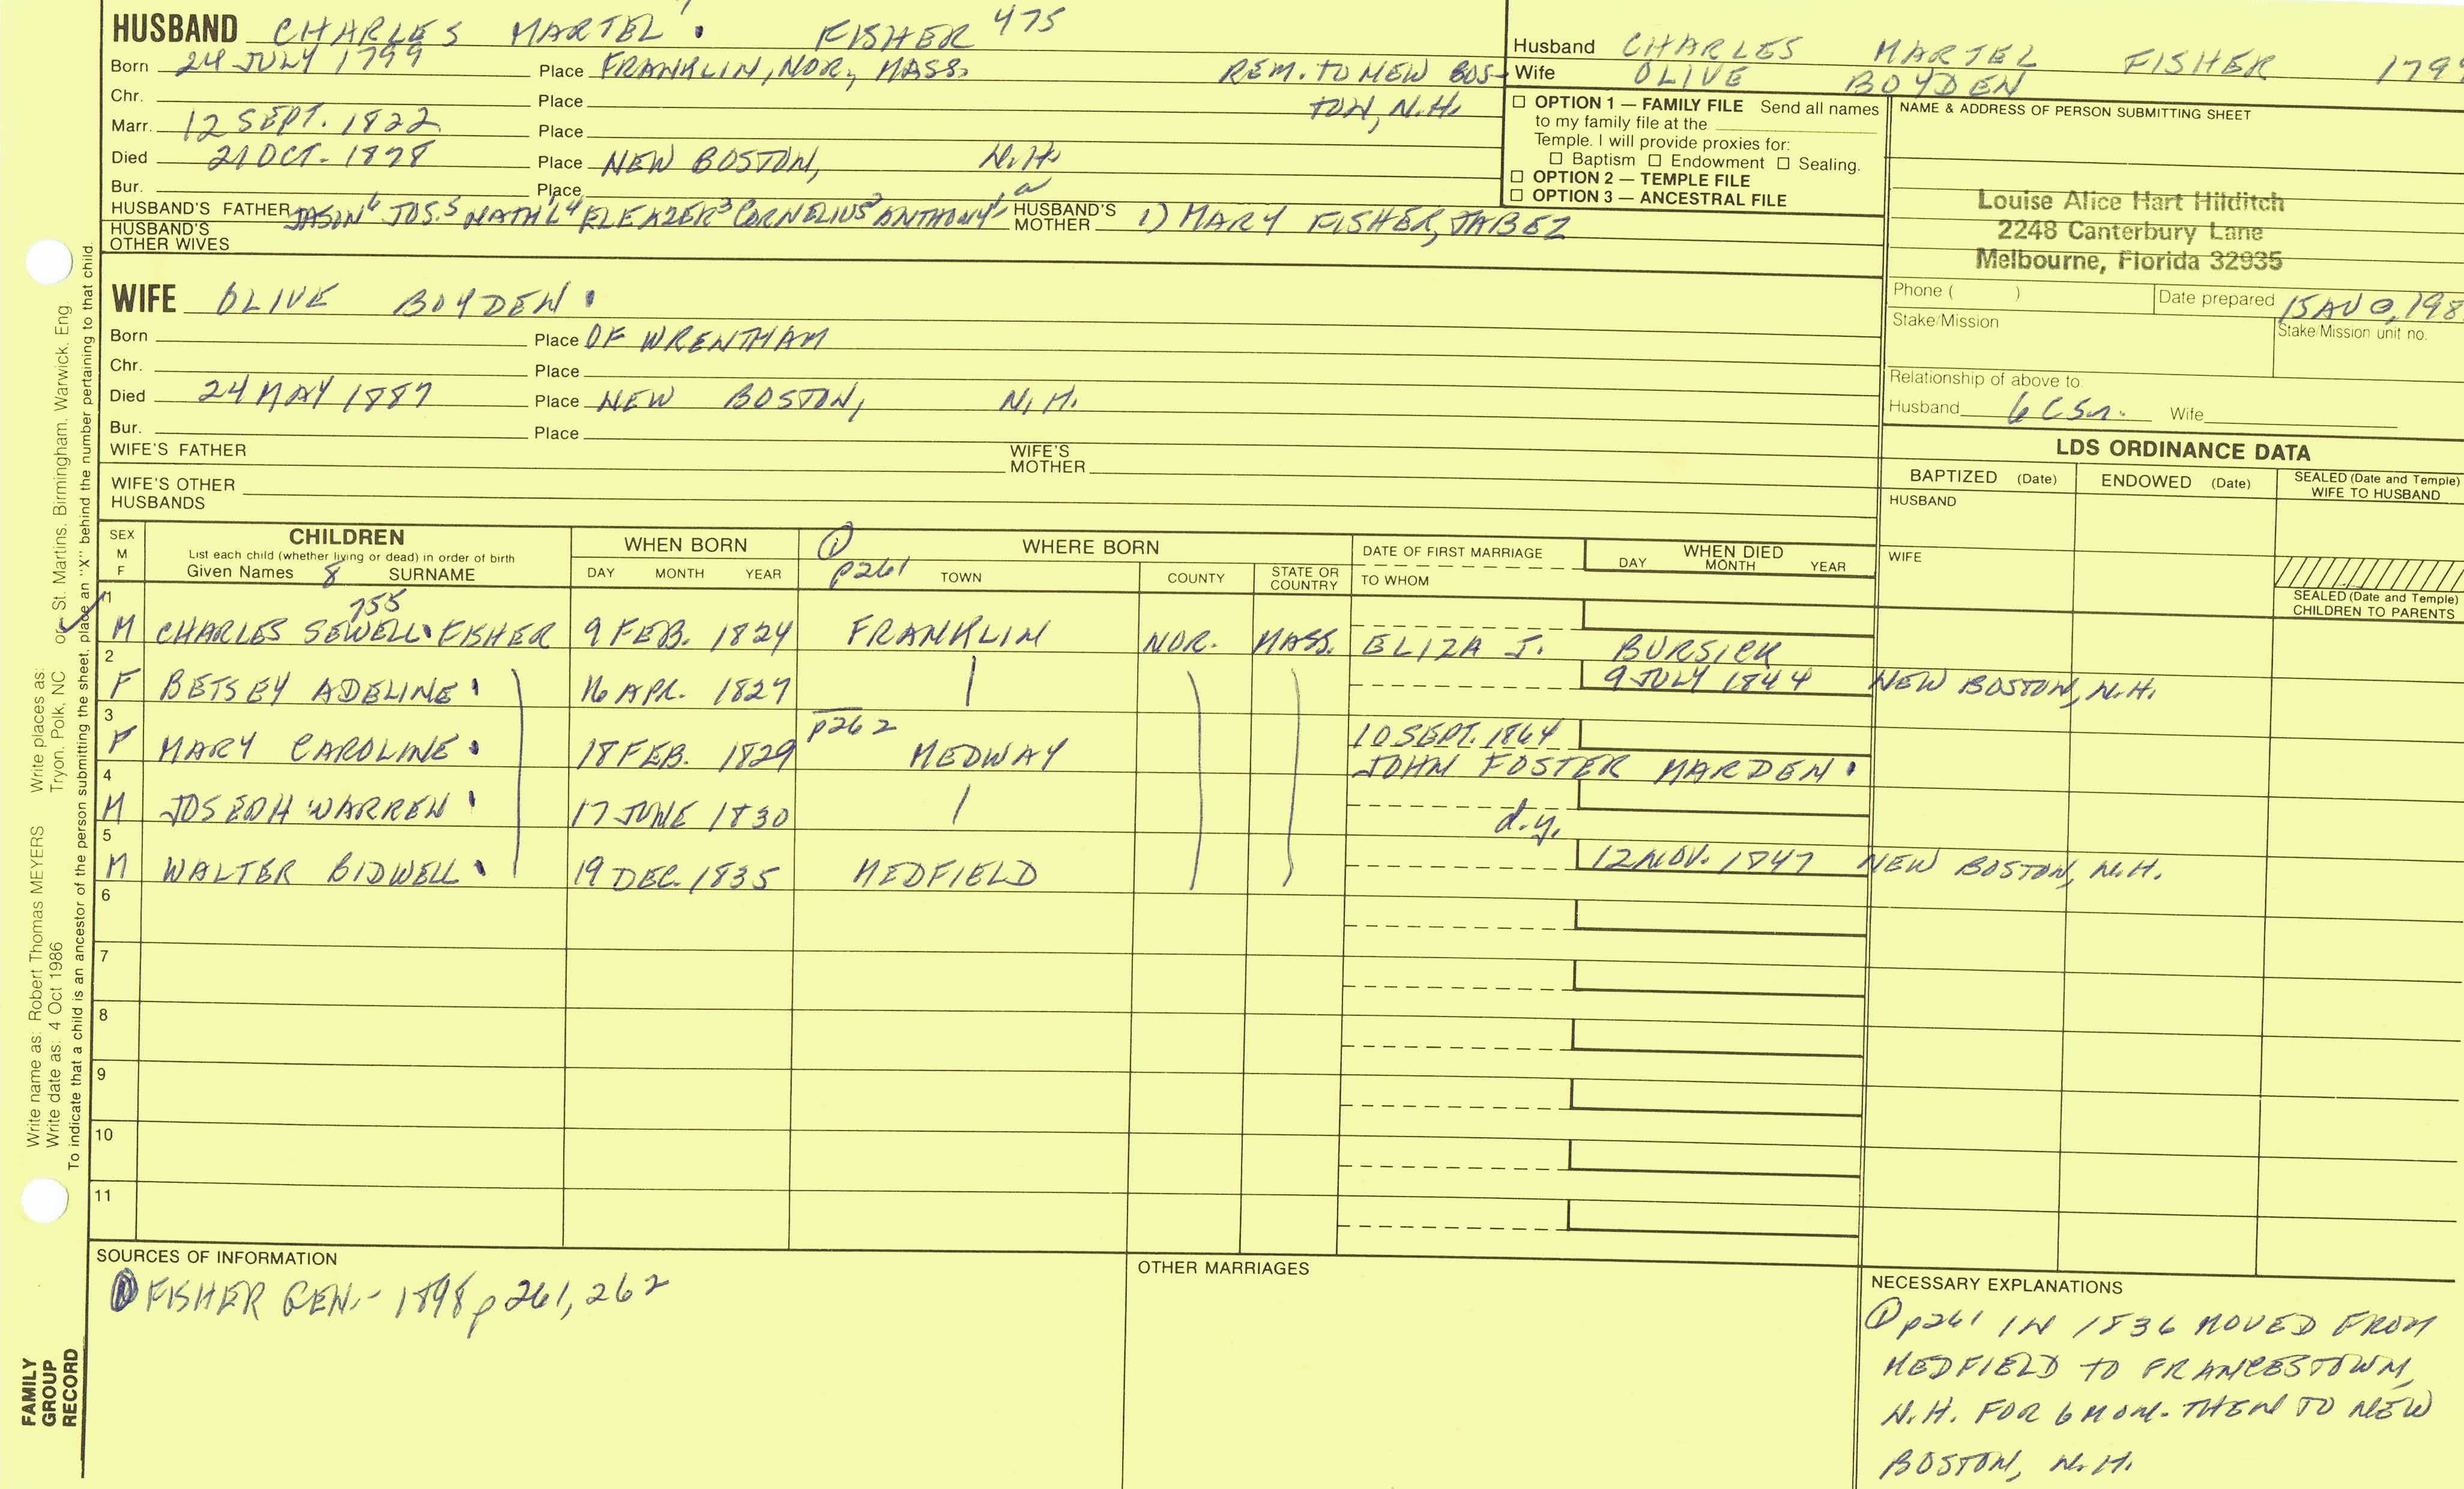 HUSBAND CHARLES MARTEL 7. FISHER 475
Born 24 JULY 1799 Place FRANKLIN, NOR., MASS. REM. TO NEW BOS-
Chr. Place TON, N.H.
Marr. 12 SEPT. 1822 Place
Died 21 OCT. 1878 Place NEW BOSTON, N.H.
Bur. Place
HUSBAND'S FATHER JASON6 JOS.5 NATH'L4 ELEAZER3 CORNELIUS2 ANTHONY1 HUSBAND'S MOTHER 1) MARY FISHER, JABEZ
HUSBAND'S OTHER WIVES
Husband CHARLES MARTEL FISHER 179
Wife OLIVE BOYDEN
☐ OPTION 1 — FAMILY FILE Send all names
to my family file at the
Temple. I will provide proxies for:
☐ Baptism ☐ Endowment ☐ Sealing.
☐ OPTION 2 — TEMPLE FILE
☐ OPTION 3 — ANCESTRAL FILE
NAME & ADDRESS OF PERSON SUBMITTING SHEET
Louise Alice Hart Hilditch
2248 Canterbury Lane
Melbourne, Florida 32935
Phone ( ) Date prepared 15 AUG, 198
Stake/Mission Stake/Mission unit no.
Relationship of above to:
Husband 6 C 5 r. Wife
WIFE OLIVE BOYDEN
Born Place OF WRENTHAM
Chr. Place
Died 24 MAY 1887 Place NEW BOSTON, N.H.
Bur. Place
WIFE'S FATHER WIFE'S MOTHER
WIFE'S OTHER HUSBANDS
LDS ORDINANCE DATA
BAPTIZED (Date) ENDOWED (Date) SEALED (Date and Temple) WIFE TO HUSBAND
HUSBAND
WIFE
SEALED (Date and Temple) CHILDREN TO PARENTS
SEX M F
CHILDREN
List each child (whether living or dead) in order of birth
Given Names 8 SURNAME
WHEN BORN
DAY MONTH YEAR
① p261
WHERE BORN
TOWN COUNTY STATE OR COUNTRY
DATE OF FIRST MARRIAGE
TO WHOM
WHEN DIED
DAY MONTH YEAR
1 M CHARLES SEWELL 755 FISHER 9 FEB. 1824 FRANKLIN NOR. MASS. ELIZA J. BURSIEK
2 F BETSEY ADELINE 16 APR. 1827 9 JULY 1844 NEW BOSTON, N.H.
3 F MARY CAROLINE 18 FEB. 1829 p262 MEDWAY 10 SEPT. 1864
JOHN FOSTER MARDEN
4 M JOSEPH WARREN 17 JUNE 1830 d.y.
5 M WALTER BIDWELL 19 DEC. 1835 MEDFIELD 12 NOV. 1847 NEW BOSTON, N.H.
6
7
8
9
10
11
SOURCES OF INFORMATION
① FISHER GEN.- 1898 p261, 262
OTHER MARRIAGES
NECESSARY EXPLANATIONS
① p261 IN 1836 MOVED FROM
MEDFIELD TO FRANCESTOWN,
N.H. FOR 6 MON. THEN TO NEW
BOSTON, N.H.
Write name as: Robert Thomas MEYERS Write places as: Tryon, Polk, NC
Write date as: 4 Oct 1986 or St. Martins, Birmingham, Warwick, Eng
To indicate that a child is an ancestor of the person submitting the sheet, place an "X" behind the number pertaining to that child.
FAMILY
GROUP
RECORD